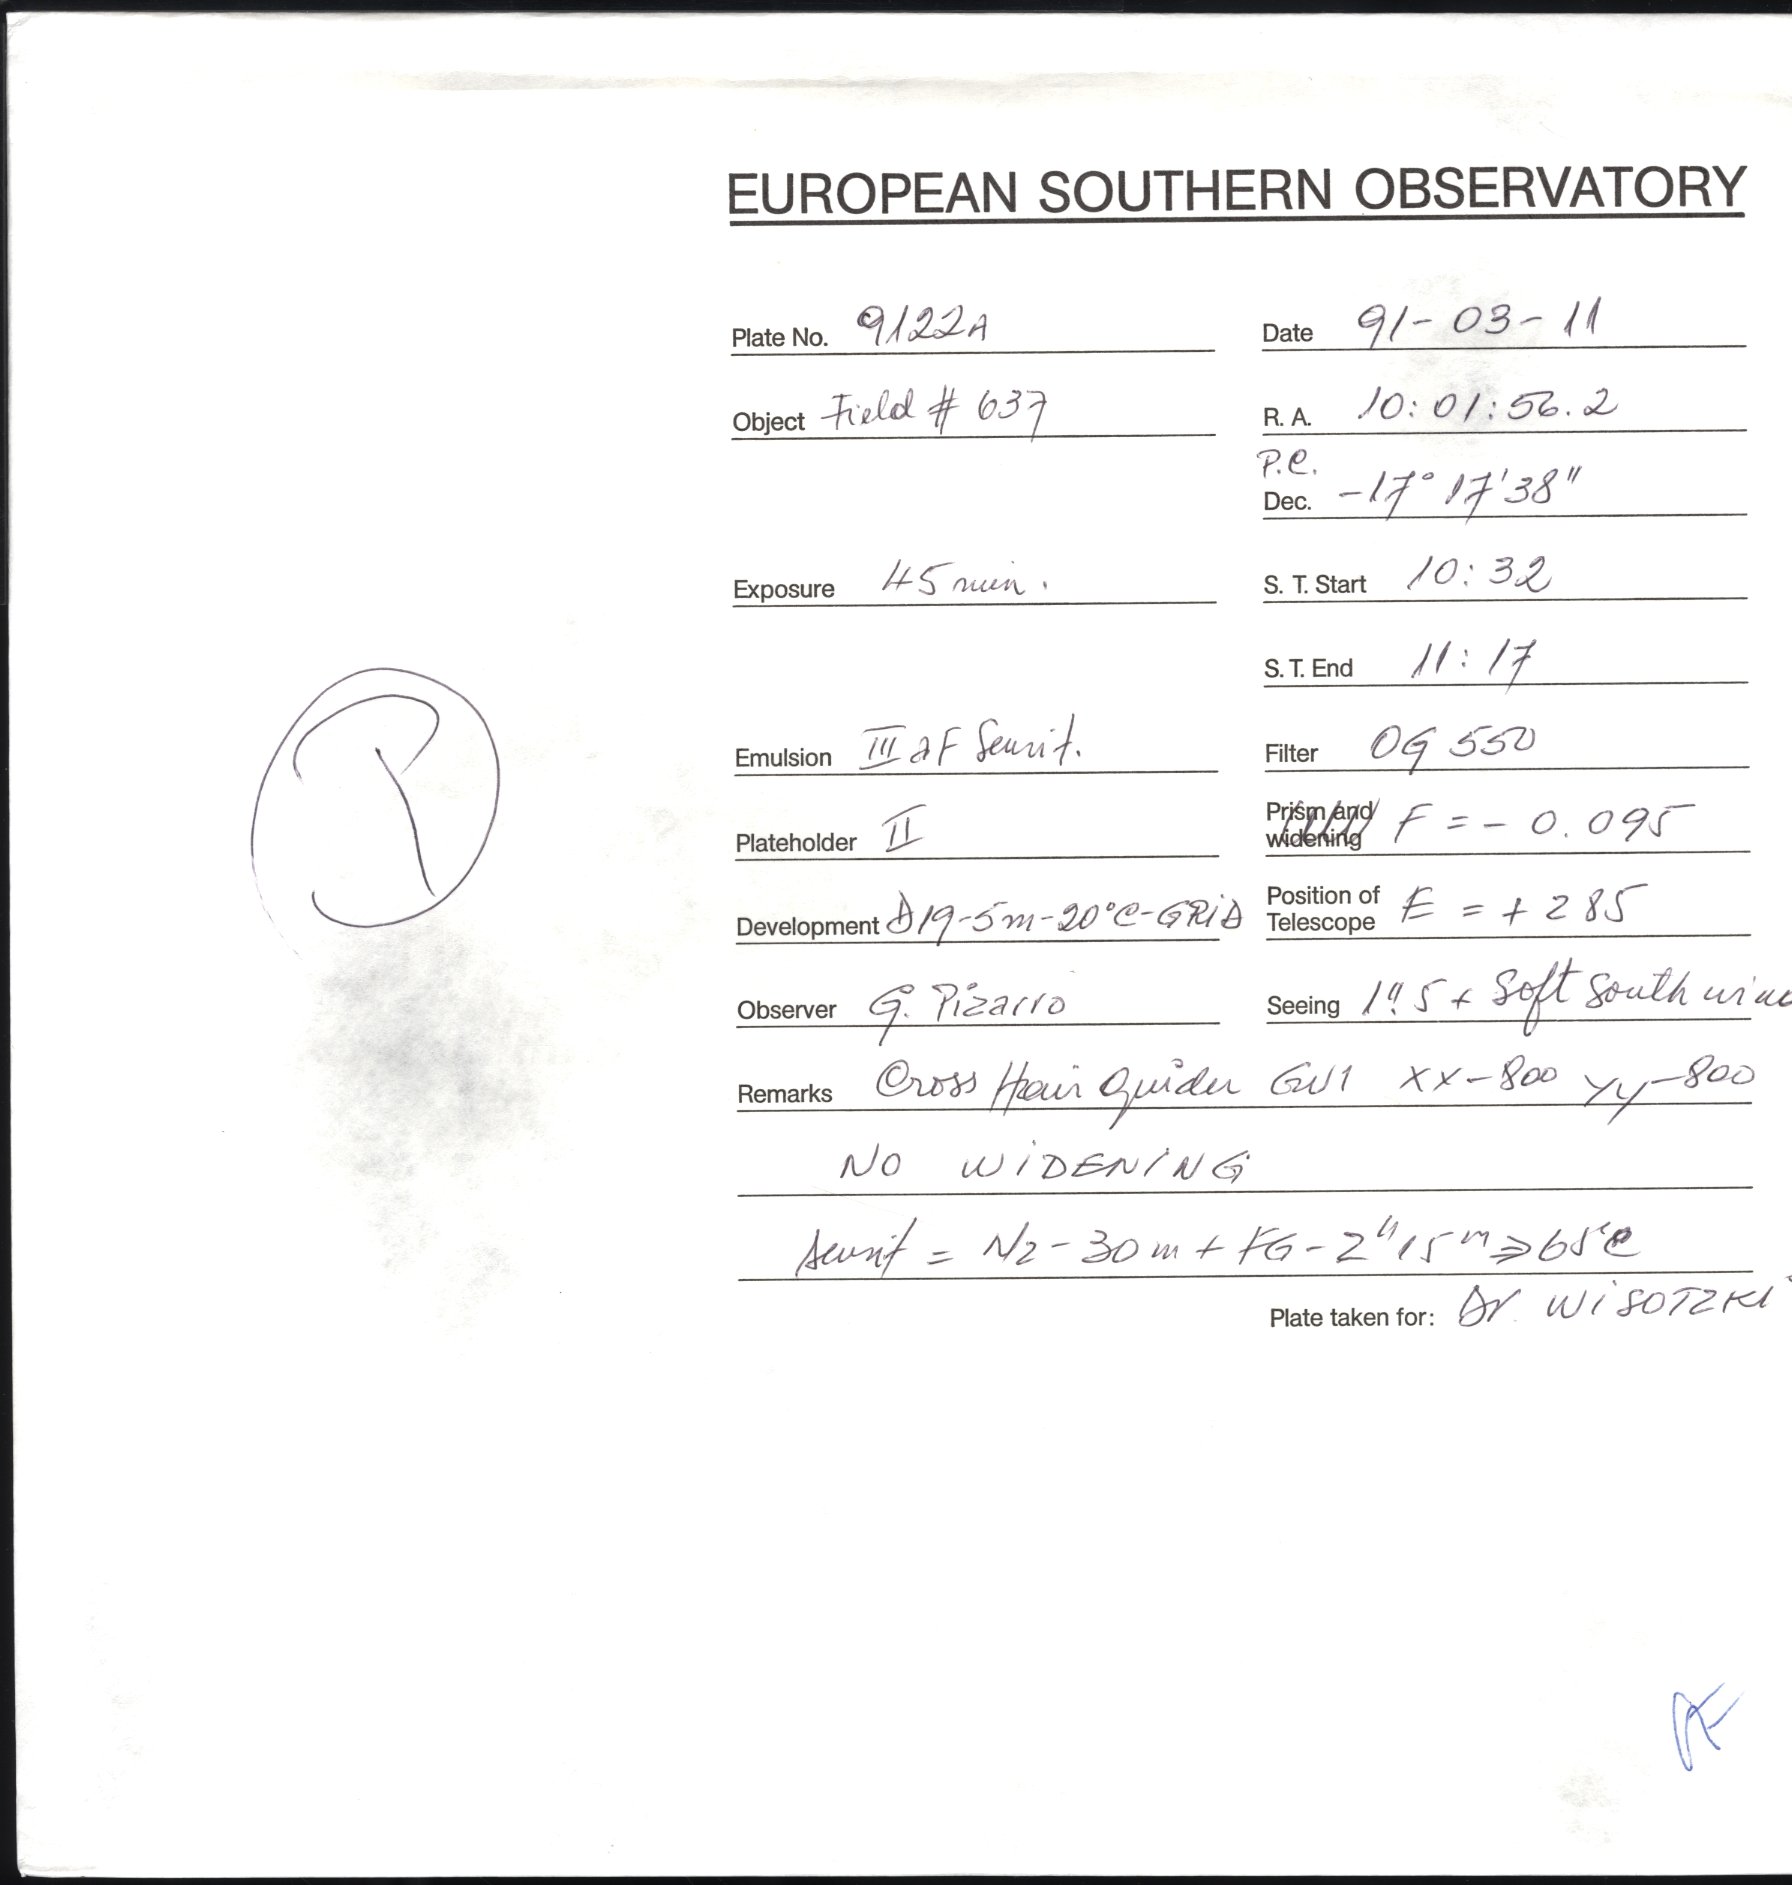 EUROPEAN SOUTHERN OBSERVATORY
Plate No. 9122A Date 91-03-11
Object Field # 637 R. A. 10:01:56.2
P.C.
Dec. -17° 17' 38"
Exposure 45 min. S. T. Start 10:32
S. T. End 11:17
Emulsion III aF Sensit. Filter OG 550
Plateholder II Prism and widening F = - 0.095
Development D19-5m-20°C-GRID Position of Telescope E = + 285
Observer G. Pizarro Seeing 1".5 + Soft South win
Remarks Cross Hair Guider GW1 XX-800 YY-800
NO WIDENING
Sensit = N2-30m + FG-2h15m ⩾ 65°C
Plate taken for: Dr. WISOTZKI